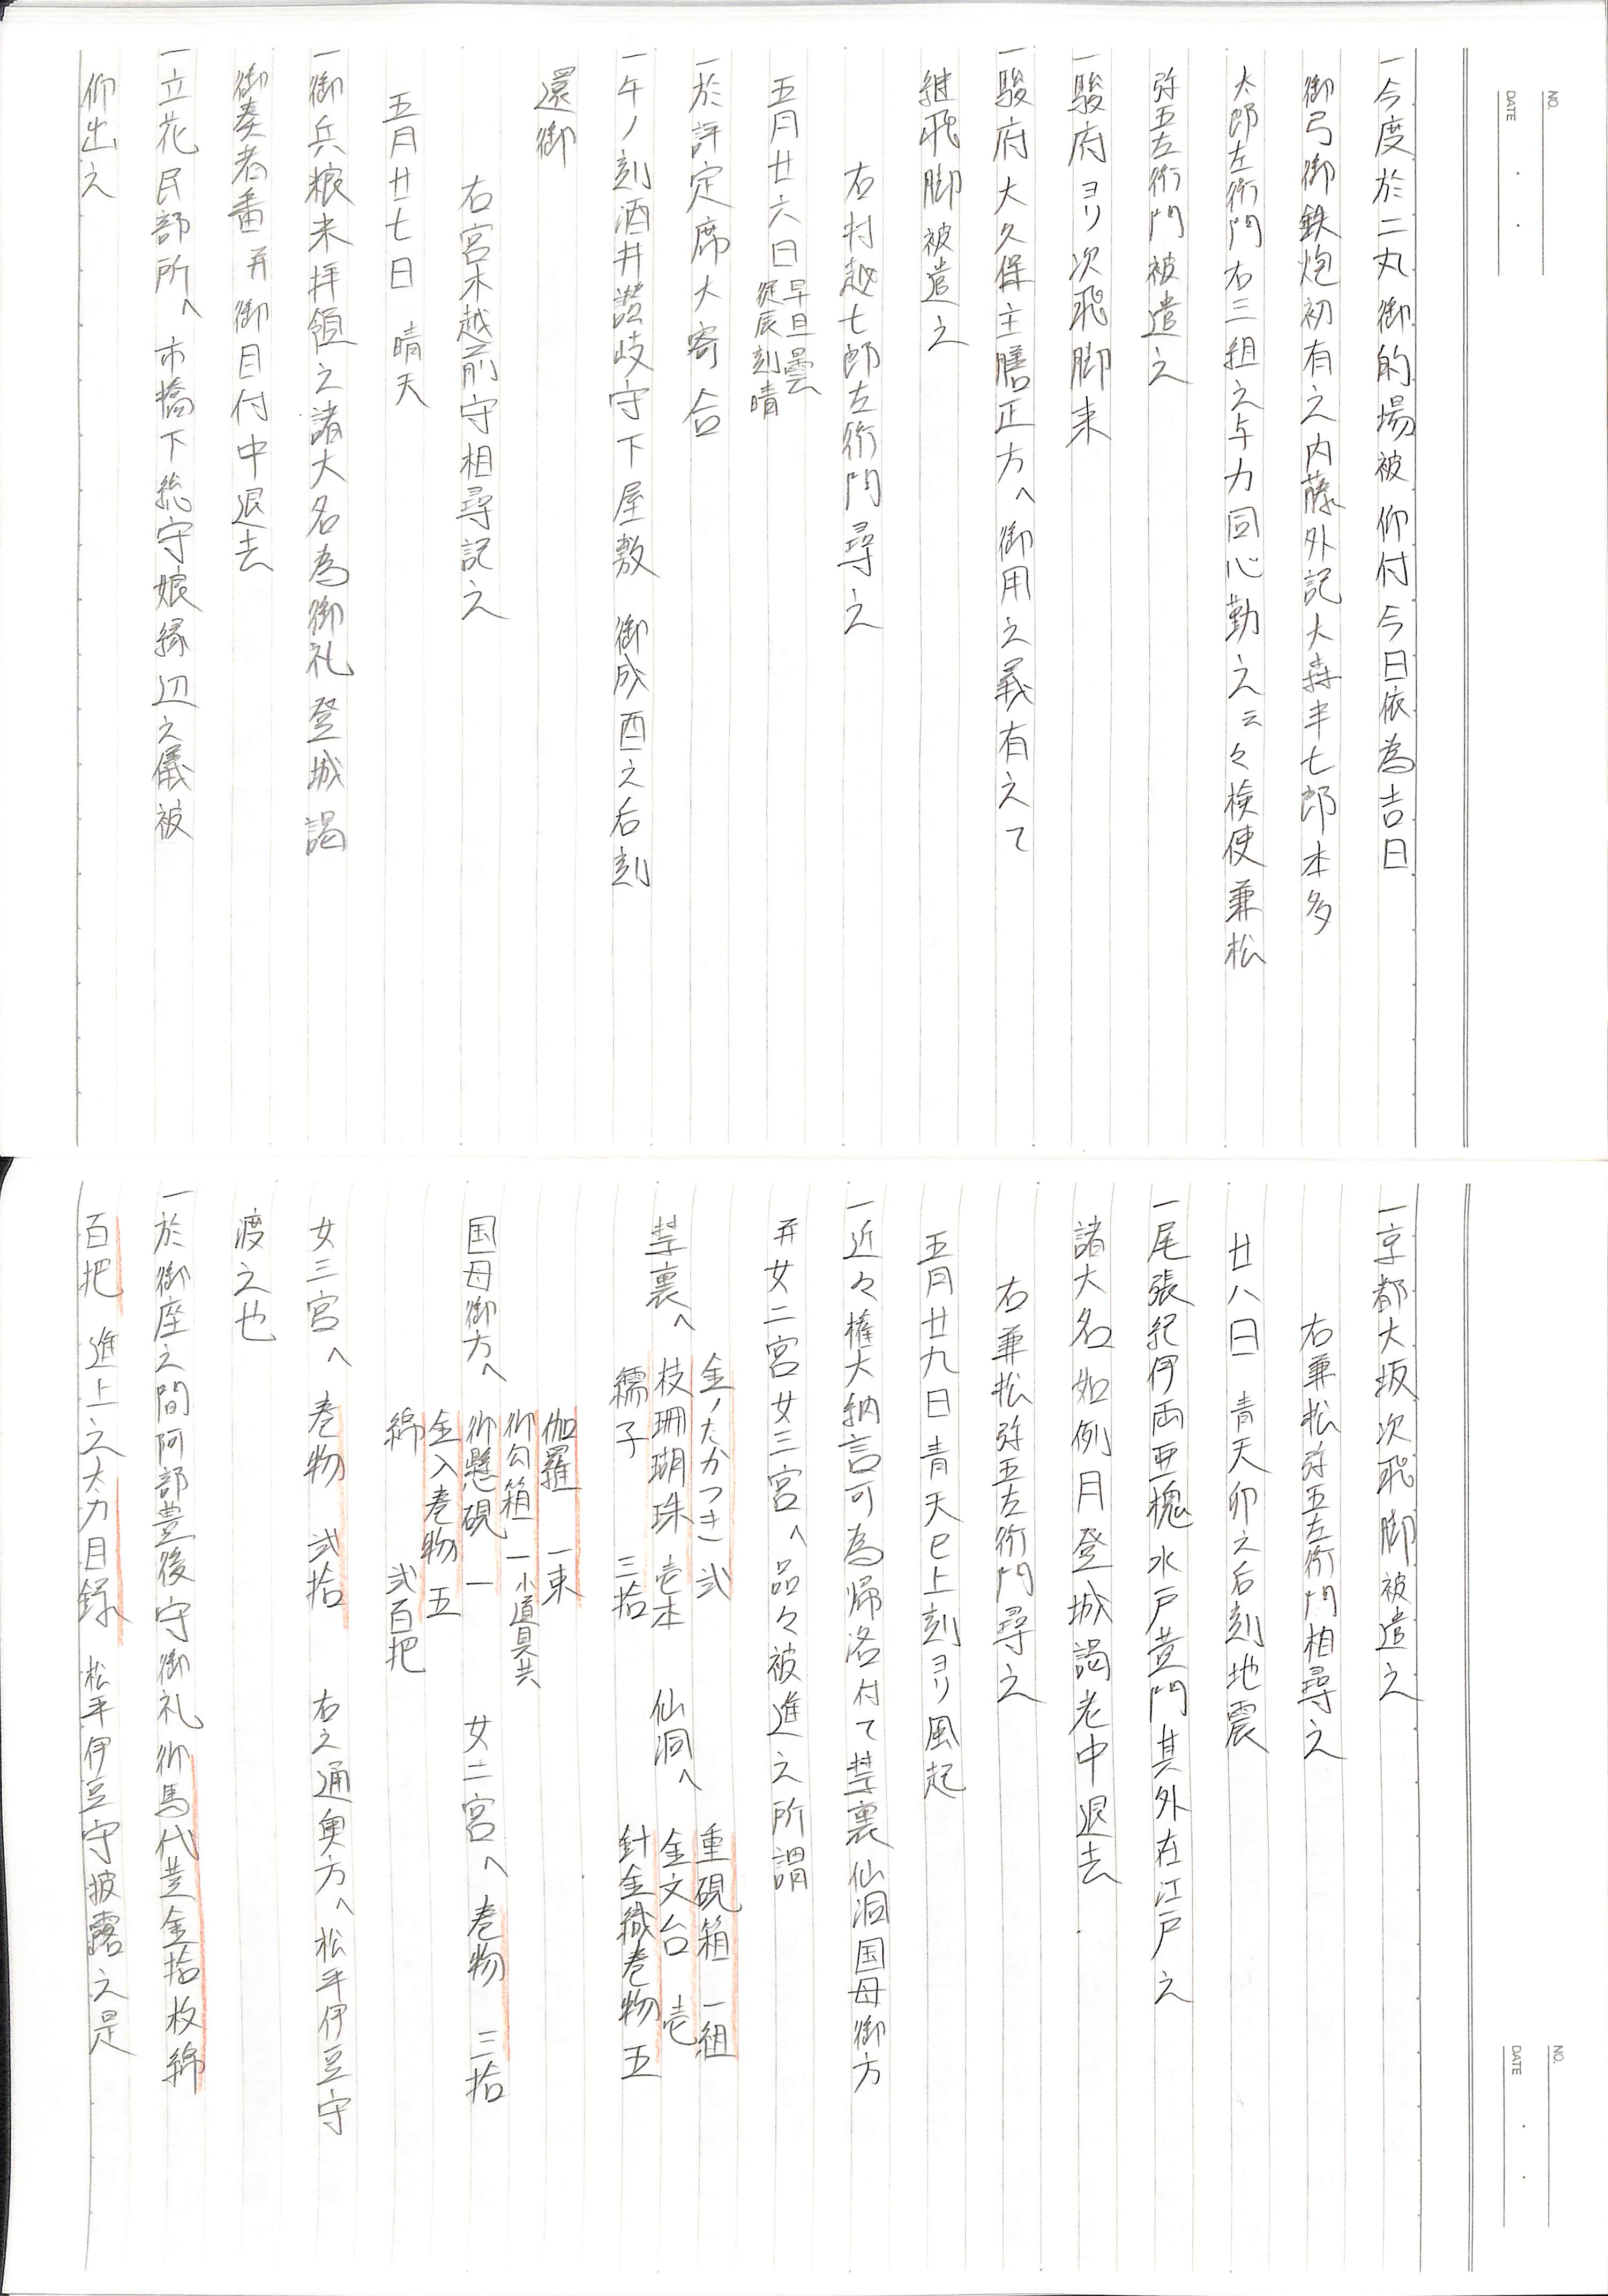 NO.
DATE
一今度於二丸御的場被 仰付今日依為吉日
御弓御鉄炮初有之内藤外記大森半七郎本多
太郎左衛門右三組之与力同心勤之云々検使兼松
弥五左衛門被遣之
一駿府ヨリ次飛脚来
一駿府大久保主膳正方へ御用之義有之て
継飛脚被遣之
右村越七郎左衛門尋之
五月廿六日 早旦曇 従辰刻晴
一於評定席大寄合
一午ノ刻酒井讃岐守下屋敷 御成酉之后刻
還御
右宮木越前守相尋記之
五月廿七日 晴天
一御兵粮米拝領之諸大名為御礼登城謁
御奏者番并御目付中退去
一立花民部所へ市橋下総守娘縁辺之儀被
仰出之
NO.
DATE
一京都大坂次飛脚被遣之
右兼松弥五左衛門相尋之
廿八日 青天卯之后刻地震
一尾張紀伊両亜槐水戸黄門其外在江戸之
諸大名如例月登城謁老中退去
右兼松弥五左衛門尋之
五月廿九日青天巳上刻ヨリ風起
一近々権大納言可為帰洛付て禁裏仙洞国母御方
并女二宮女三宮へ品々被進之所謂
禁裏へ 金ノたかつき 弐
枝珊瑚珠 壱本
繻子 三拾
仙洞へ 重硯箱 一組
金文台 壱
針金織巻物 五
国母御方へ 伽羅 一束
御匂箱 一小道具共
御懸硯 一
金入巻物 五
綿 弐百把
女二宮へ 巻物 三拾
女三宮へ 巻物 弐拾 右之通奥方へ松平伊豆守
渡之也
一於御座之間阿部豊後守御礼御馬代黄金拾枚綿
百把 進上之太刀目録 松平伊豆守披露之是